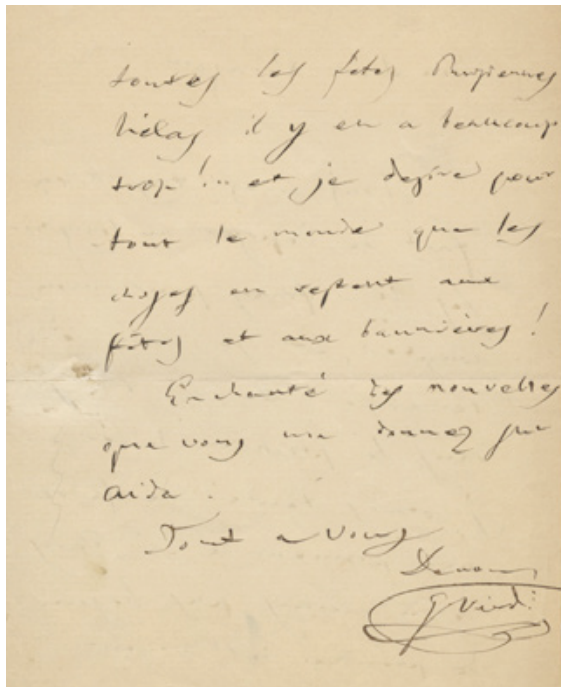 toutes les fêtes Parisiennes
hélas il y en a beaucoup
trop!... et je desire pour
tout le monde que les
choses en restent aux
fêtes et aux bannières!
Enchanté des nouvelles
que vous me donnez sur
Aida.
Tout a Vous
G Verdi